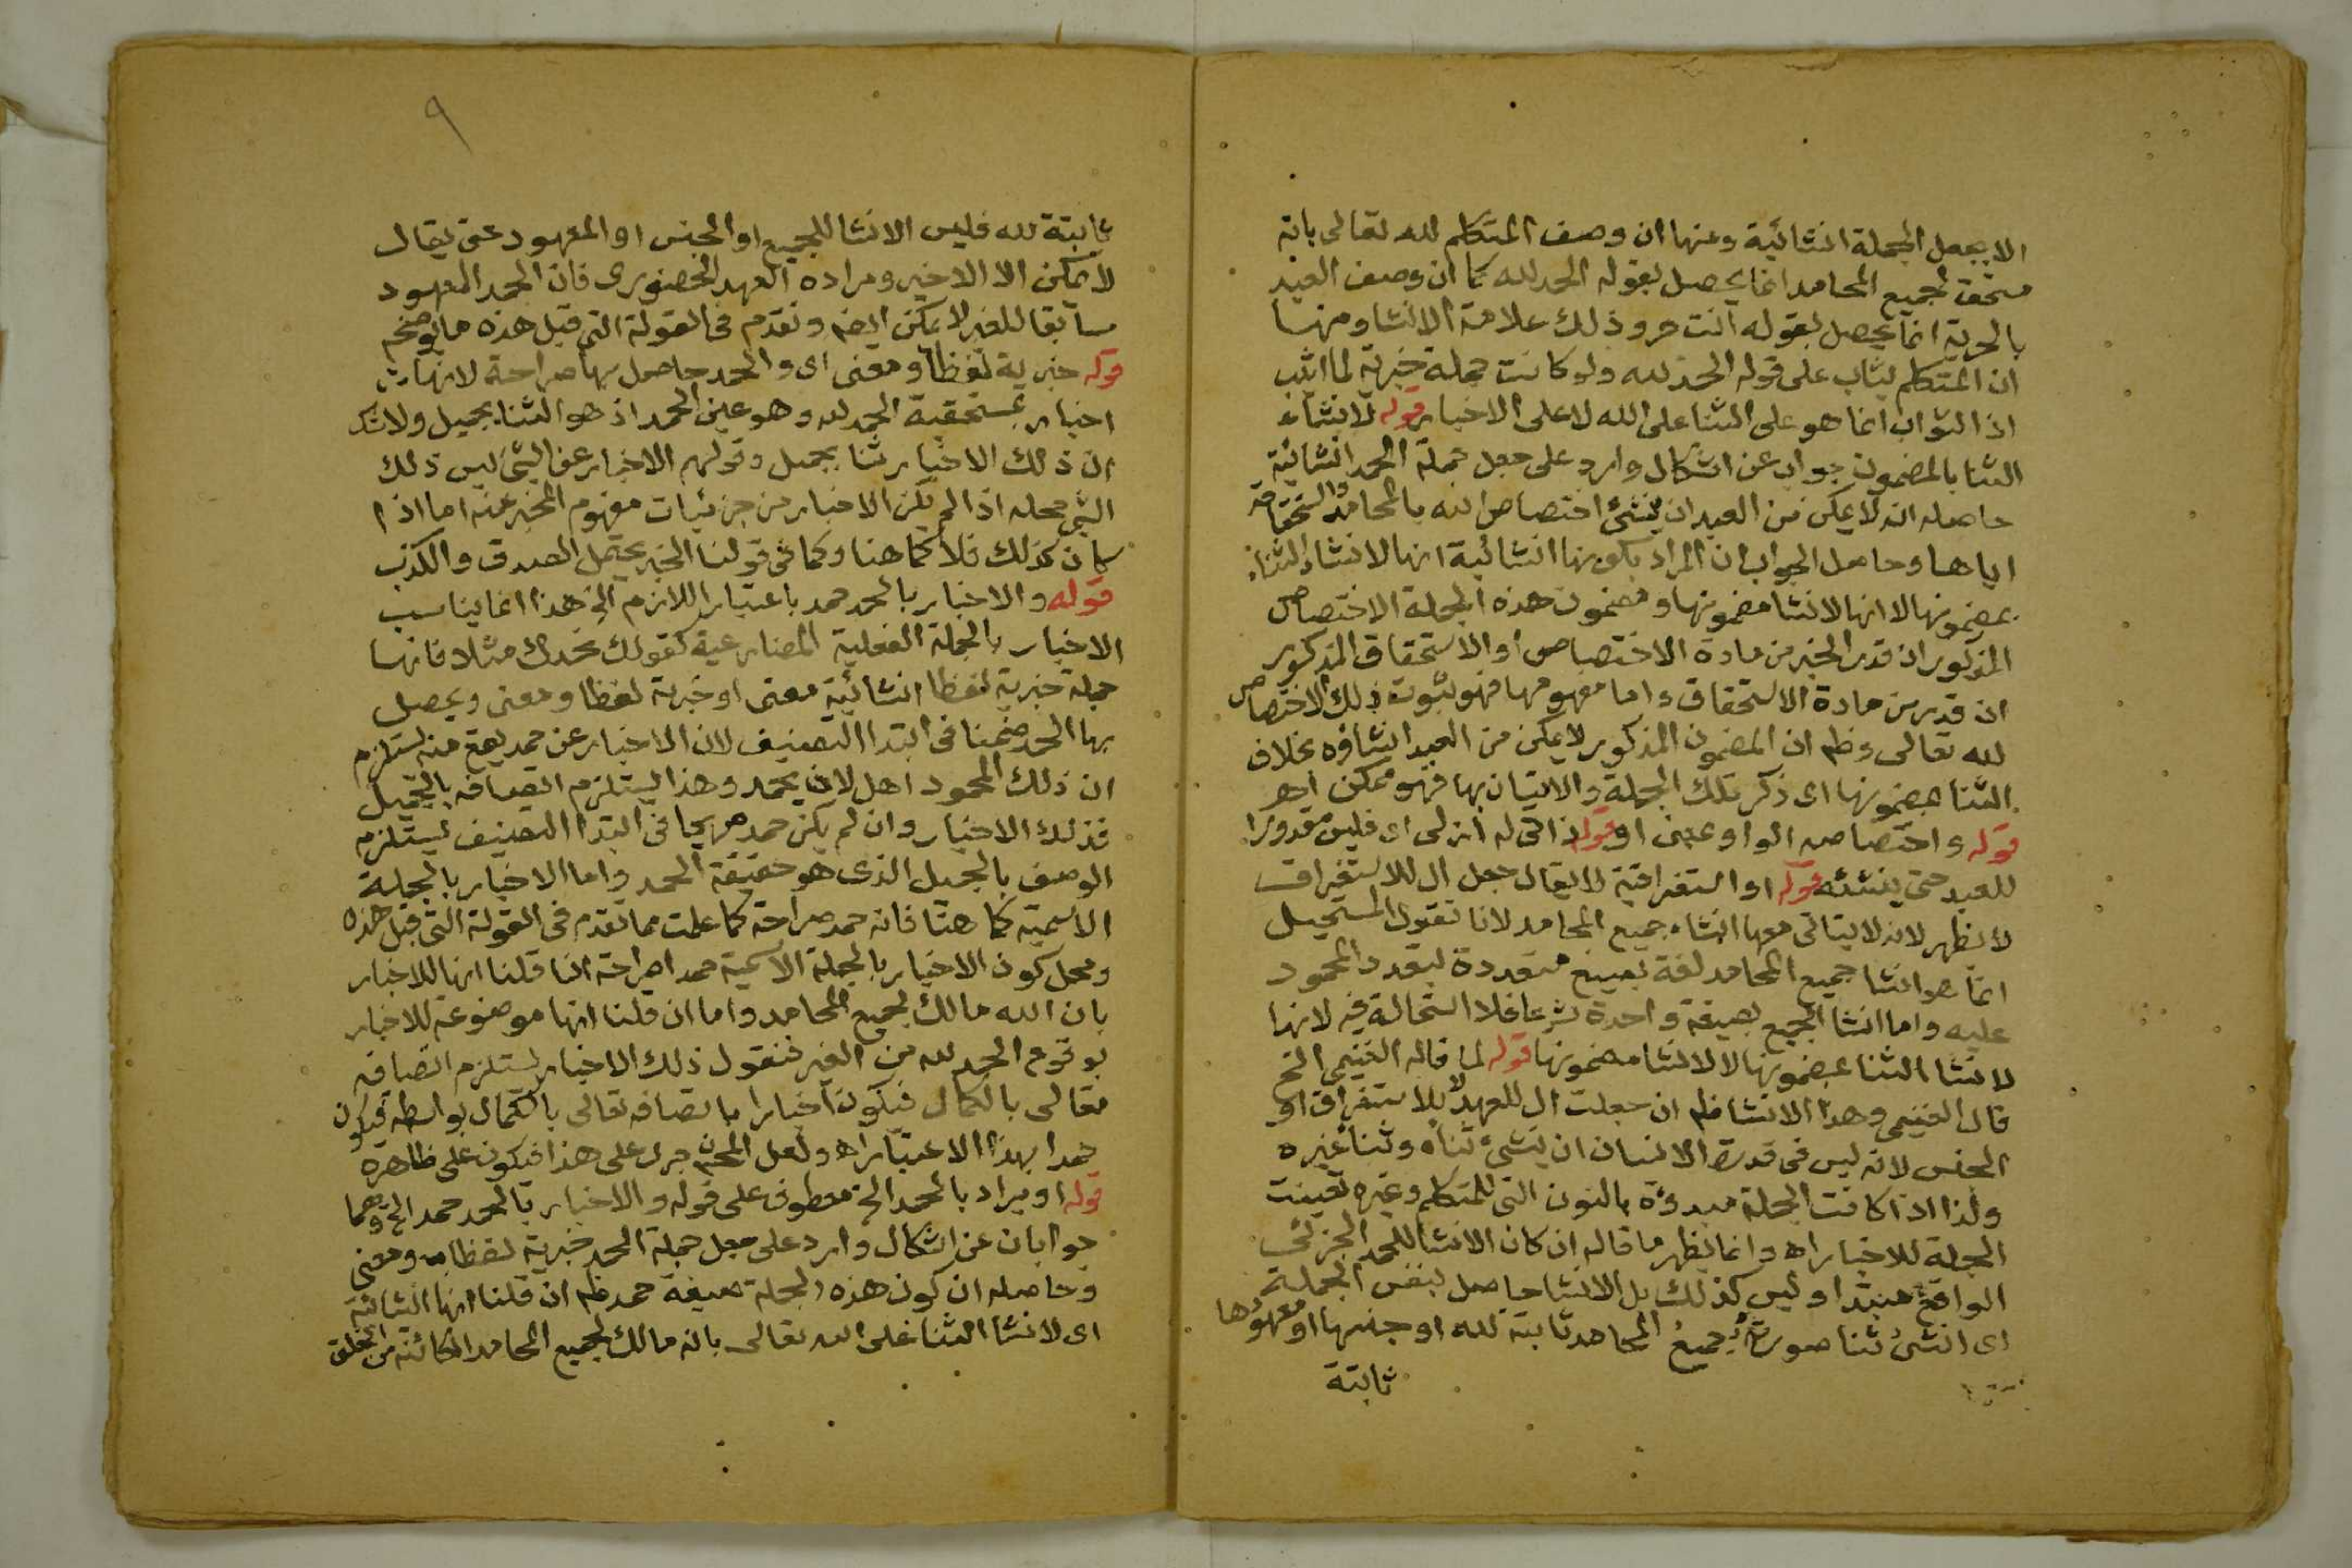 الا بجعل الجملة انشائية ومنها ان وصف المتكلم لله تعالى بانه
مستحق لجميع المحامد انما يحصل بقوله الحمد لله كما ان وصف العبد
بالحرية انما يحصل بقوله انت حر وذلك علامة الانشا ومنها
ان المتكلم يثاب على قوله الحمد لله ولو كانت جملة خبرية لما اثيب
اذ الثواب انما هو على الثنا على الله لا على الاخبار قوله لانشاء
الثنا بالمضمون جواب عن اشكال وارد على جعل جملة الحمد انشائية
حاصله انه لا يمكن من العبد ان ينشئ اختصاص الله بالمحامد واستحقاقه
اياها وحاصل الجواب ان المراد بكونها انشائية انها لانشاء الثناء
بمضمونها لا انها لانشا مضمونها ومضمون هذه الجملة الاختصاص
المذكور ان قدر الخبر من مادة الاختصاص او الاستحقاق المذكور
ان قدر من مادة الاستحقاق واما مفهومها فهو ثبوت ذلك الاختصاص
لله تعالى وظم ان المضمون المذكور لا يمكن من العبد انشاؤه بخلاف
الثنا بمضمونها اى ذكر تلك الجملة والاتيان بها فهو ممكن اهر
قوله واختصاصه الواو بمعنى او قوله ذاتى له ازلى اى فليس مقدورا
للعبد حتى ينشئه قوله او استغراقية لا يقال جعل ال للاستغراق
لا يظهر لانه لا يتاتى معها انشاء جميع المحامد لانا نقول المستحيل
انما هو انشا جميع المحامد لغة بصيغ متعددة بتعدد المحمود
عليه واما انشا الجميع بصيغة واحدة شرعا فلا استحالة فيه لانها
لانشا الثنا بمضمونها لا لانشا مضمونها قوله لما قاله الغنيمى الخ
قال الغنيمى وهذا الانشا ظم ان جعلت ال للعهد لا للاستغراق او
الجنس لانه ليس فى قدرة الانسان ان ينشئ ثناه وثنا غيره
ولذا اذا كانت الجملة مبدوة بالنون التى للمتكلم وغيره تعينت
الجملة للاخبار اه وانما يظهر ما قاله ان كان الانشا للحمد الجزئى
الواقع مبتدا وليس كذلك بل الانشا حاصل بنفس الجملة
اى انشئ ثنا صورته جميع المحامد ثابتة لله او جنسها او معهودها
ثابتة
٩
ثابتة لله فليس الانشا للجميع او الجنس او المعهود حتى يقال
لا يمكن الا الاخير ومراده العهد الحضورى فان الحمد المعهود
سابقا للغير لا يمكن ايضم وتقدم فى القولة التى قبل هذه ما يوضحه
قوله خبرية لفظا ومعنى اى والحمد حاصل بها صراحة لانها
اخبار بمستحقية الحمد لله وهو عين الحمد اذ هو الثنا بجميل ولا شك
ان ذلك الاخبار ثنا بجميل وقولهم الاخبار عن الشئ ليس ذلك
الشئ محله اذا لم يكن الاخبار من جزئيات مفهوم المخبر عنه اما اذا
كان كذلك فلا كما هنا وكما فى قولنا الخبر يحتمل الصدق والكذب
قوله والاخبار بالحمد حمد باعتبار اللازم الخ هذا انما يناسب
الاخبار بالجملة الفعلية المضارعية كقولك نحمدك مثلا فانها
جملة خبرية لفظا انشائية معنى او خبرية لفظا ومعنى ويحصل
بها الحمد ضمنا فى ابتدا التصنيف لان الاخبار عن حمد يقع منه يستلزم
ان ذلك المحمود اهل لان يحمد وهذا يستلزم اتصافه بالجميل
فذلك الاخبار وان لم يكن حمد صريحا فى ابتدا التصنيف يستلزم
الوصف بالجميل الذى هو حقيقة الحمد واما الاخبار بالجملة
الاسمية كما هنا فانه حمد صراحة كما علمت مما تقدم فى القولة التى قبل هذه
ومحل كون الاخبار بالجملة الاسمية حمدا صراحة اذا قلنا انها للاخبار
بان الله مالك لجميع المحامد واما ان قلنا انها موضوعة للاخبار
بوقوع الحمد لله من الغير فنقول ذلك الاخبار يستلزم اتصافه
تعالى بالكمال فيكون اخبارا باتصافه تعالى بالكمال بواسطة فيكون
حمدا بهذا الاعتبار اه ولعل المحشى جرى على هذا فيكون على ظاهره
قوله او يراد بالحمد الخ معطوف على قوله والاخبار بالحمد حمد الخ وهما
جوابان عن اشكال وارد على جعل جملة الحمد خبرية لفظا ومعنى
وحاصله ان كون هذه الجملة صيغة حمد ظم ان قلنا انها انشائية
اى لانشا الثنا على الله تعالى بانه مالك لجميع المحامد الكائنة من الخلق